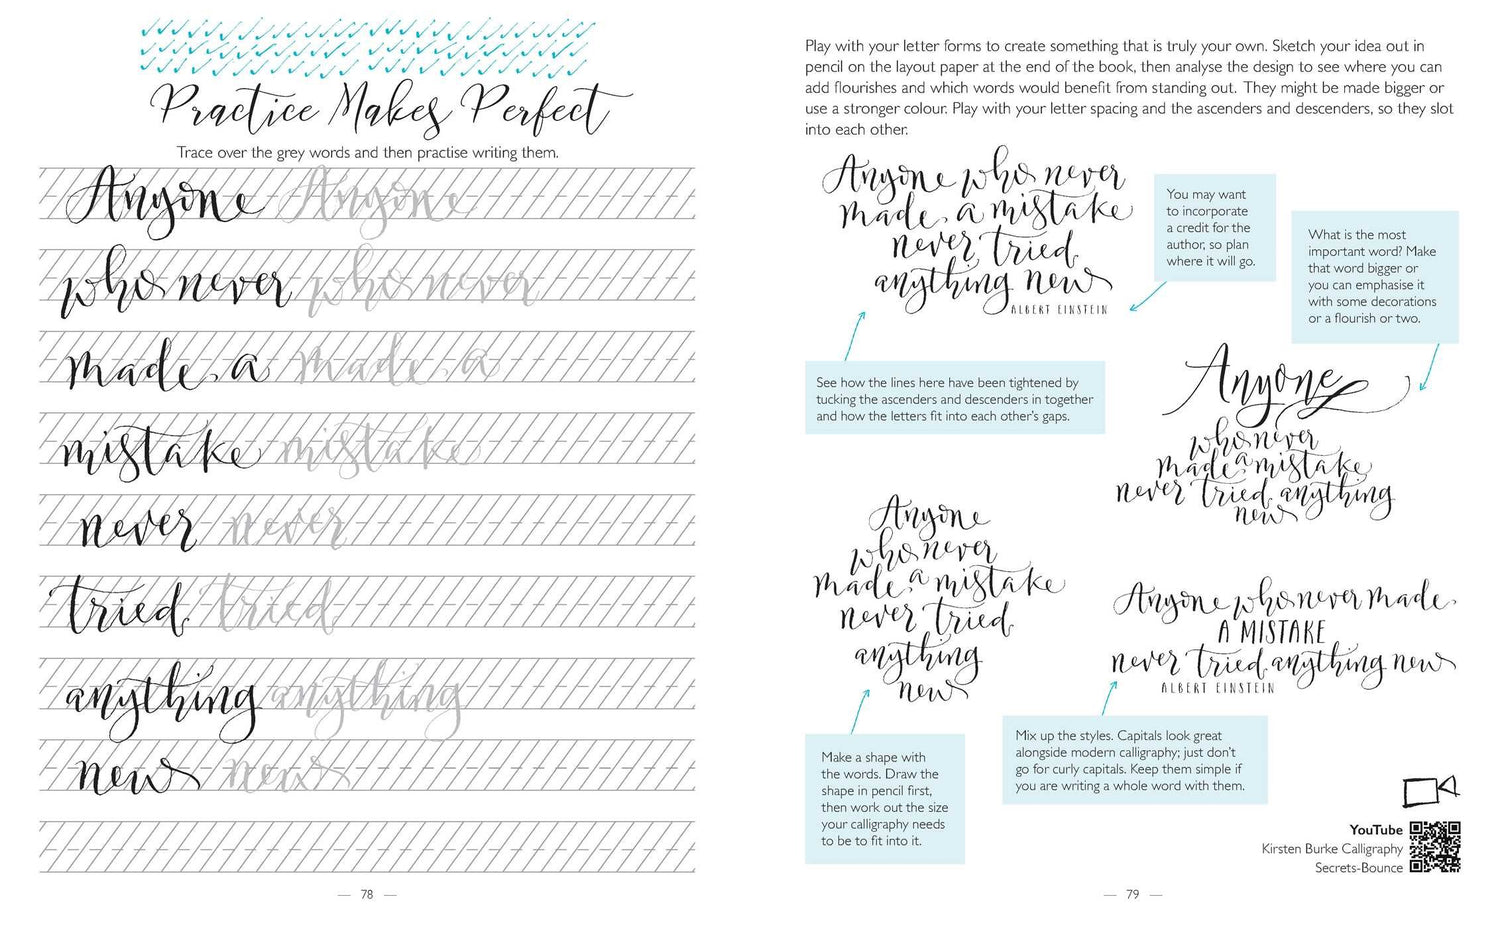 Practice Makes Perfect
Trace over the grey words and then practise writing them.
Anyone Anyone
who never who never
made a made a
mistake mistake
never never
tried tried
anything anything
new new
78
Play with your letter forms to create something that is truly your own. Sketch your idea out in
pencil on the layout paper at the end of the book, then analyse the design to see where you can
add flourishes and which words would benefit from standing out. They might be made bigger or
use a stronger colour. Play with your letter spacing and the ascenders and descenders, so they slot
into each other.
Anyone who never
made a mistake
never tried
anything new
ALBERT EINSTEIN
You may want
to incorporate
a credit for the
author, so plan
where it will go.
What is the most
important word? Make
that word bigger or
you can emphasise it
with some decorations
or a flourish or two.
See how the lines here have been tightened by
tucking the ascenders and descenders in together
and how the letters fit into each other's gaps.
Anyone
who never
made a mistake
never tried anything
new
Anyone
who never
made a mistake
never tried
anything
new
Anyone who never made
A MISTAKE
never tried anything new
ALBERT EINSTEIN
Make a shape with
the words. Draw the
shape in pencil first,
then work out the size
your calligraphy needs
to be to fit into it.
Mix up the styles. Capitals look great
alongside modern calligraphy; just don't
go for curly capitals. Keep them simple if
you are writing a whole word with them.
YouTube
Kirsten Burke Calligraphy
Secrets-Bounce
79